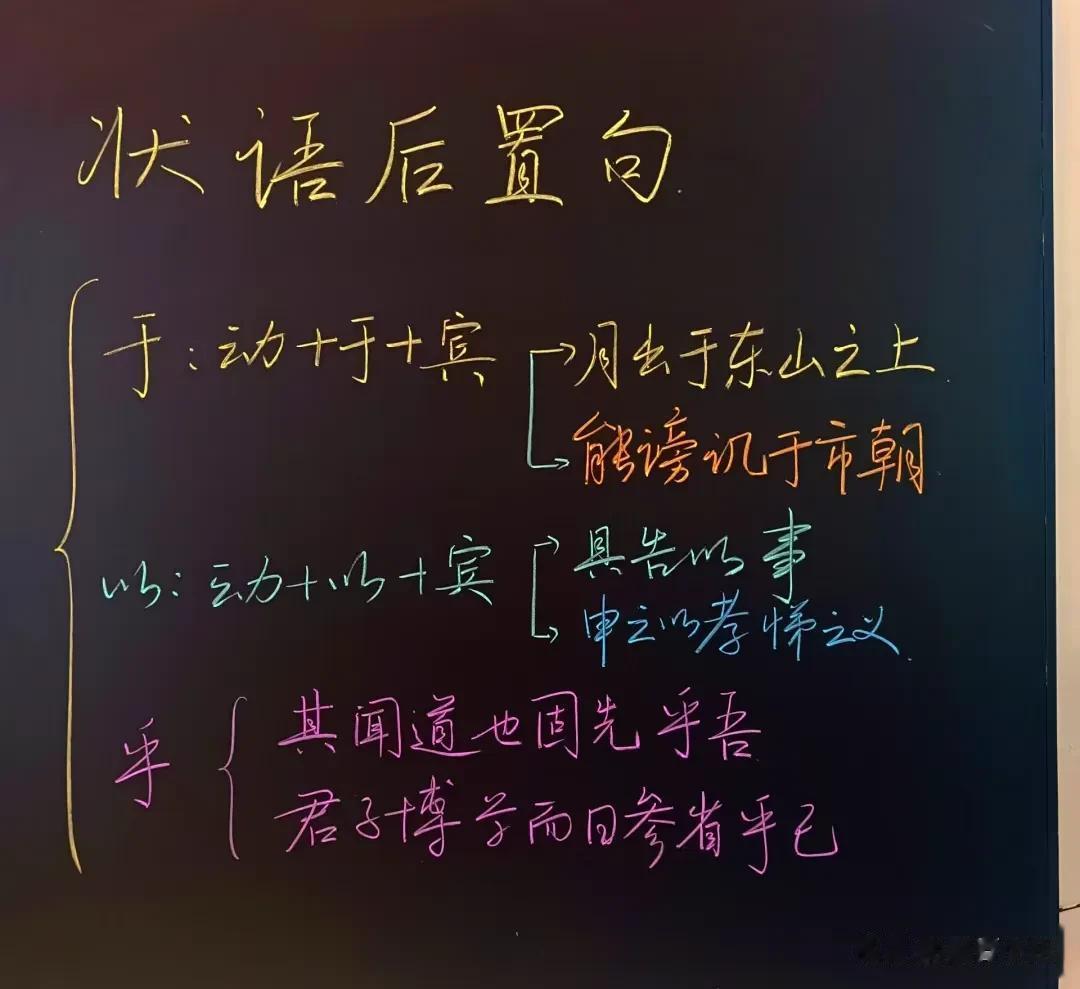 状语后置句.
于：动+于+宾 月出于东山之上.
能谤讥于市朝
以：动+以+宾 具告以事
申之以孝悌之义.
乎
其闻道也固先乎吾
君子博学而日参省乎己